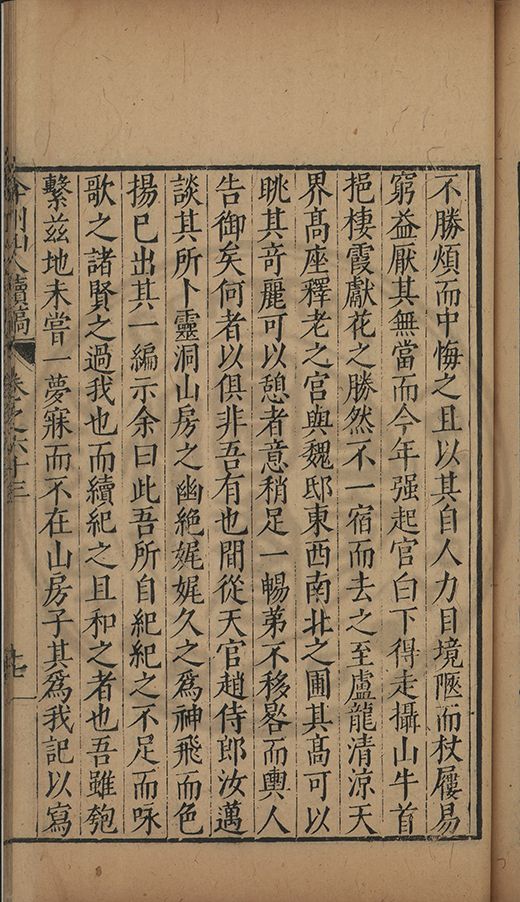 不勝煩而中悔之且以其自人力目境陿而杖屨易
窮益厭其無當而今年强起官白下得走攝山牛首
挹棲霞獻花之勝然不一宿而去之至盧龍清涼天
界高座釋老之宮與魏邸東西南北之圃其高可以
眺其奇麗可以憩者意稍足一暢第不移晷而輿人
告御矣何者以俱非吾有也間從天官趙侍郎汝邁
談其所卜靈洞山房之幽絶娓娓久之爲神飛而色
揚已出其一編示余曰此吾所自紀紀之不足而咏
歌之諸賢之過我也而續紀之且和之者也吾雖匏
繫茲地未嘗一夢寐而不在山房子其爲我記以寫
弇州山人續稿 卷之六十三